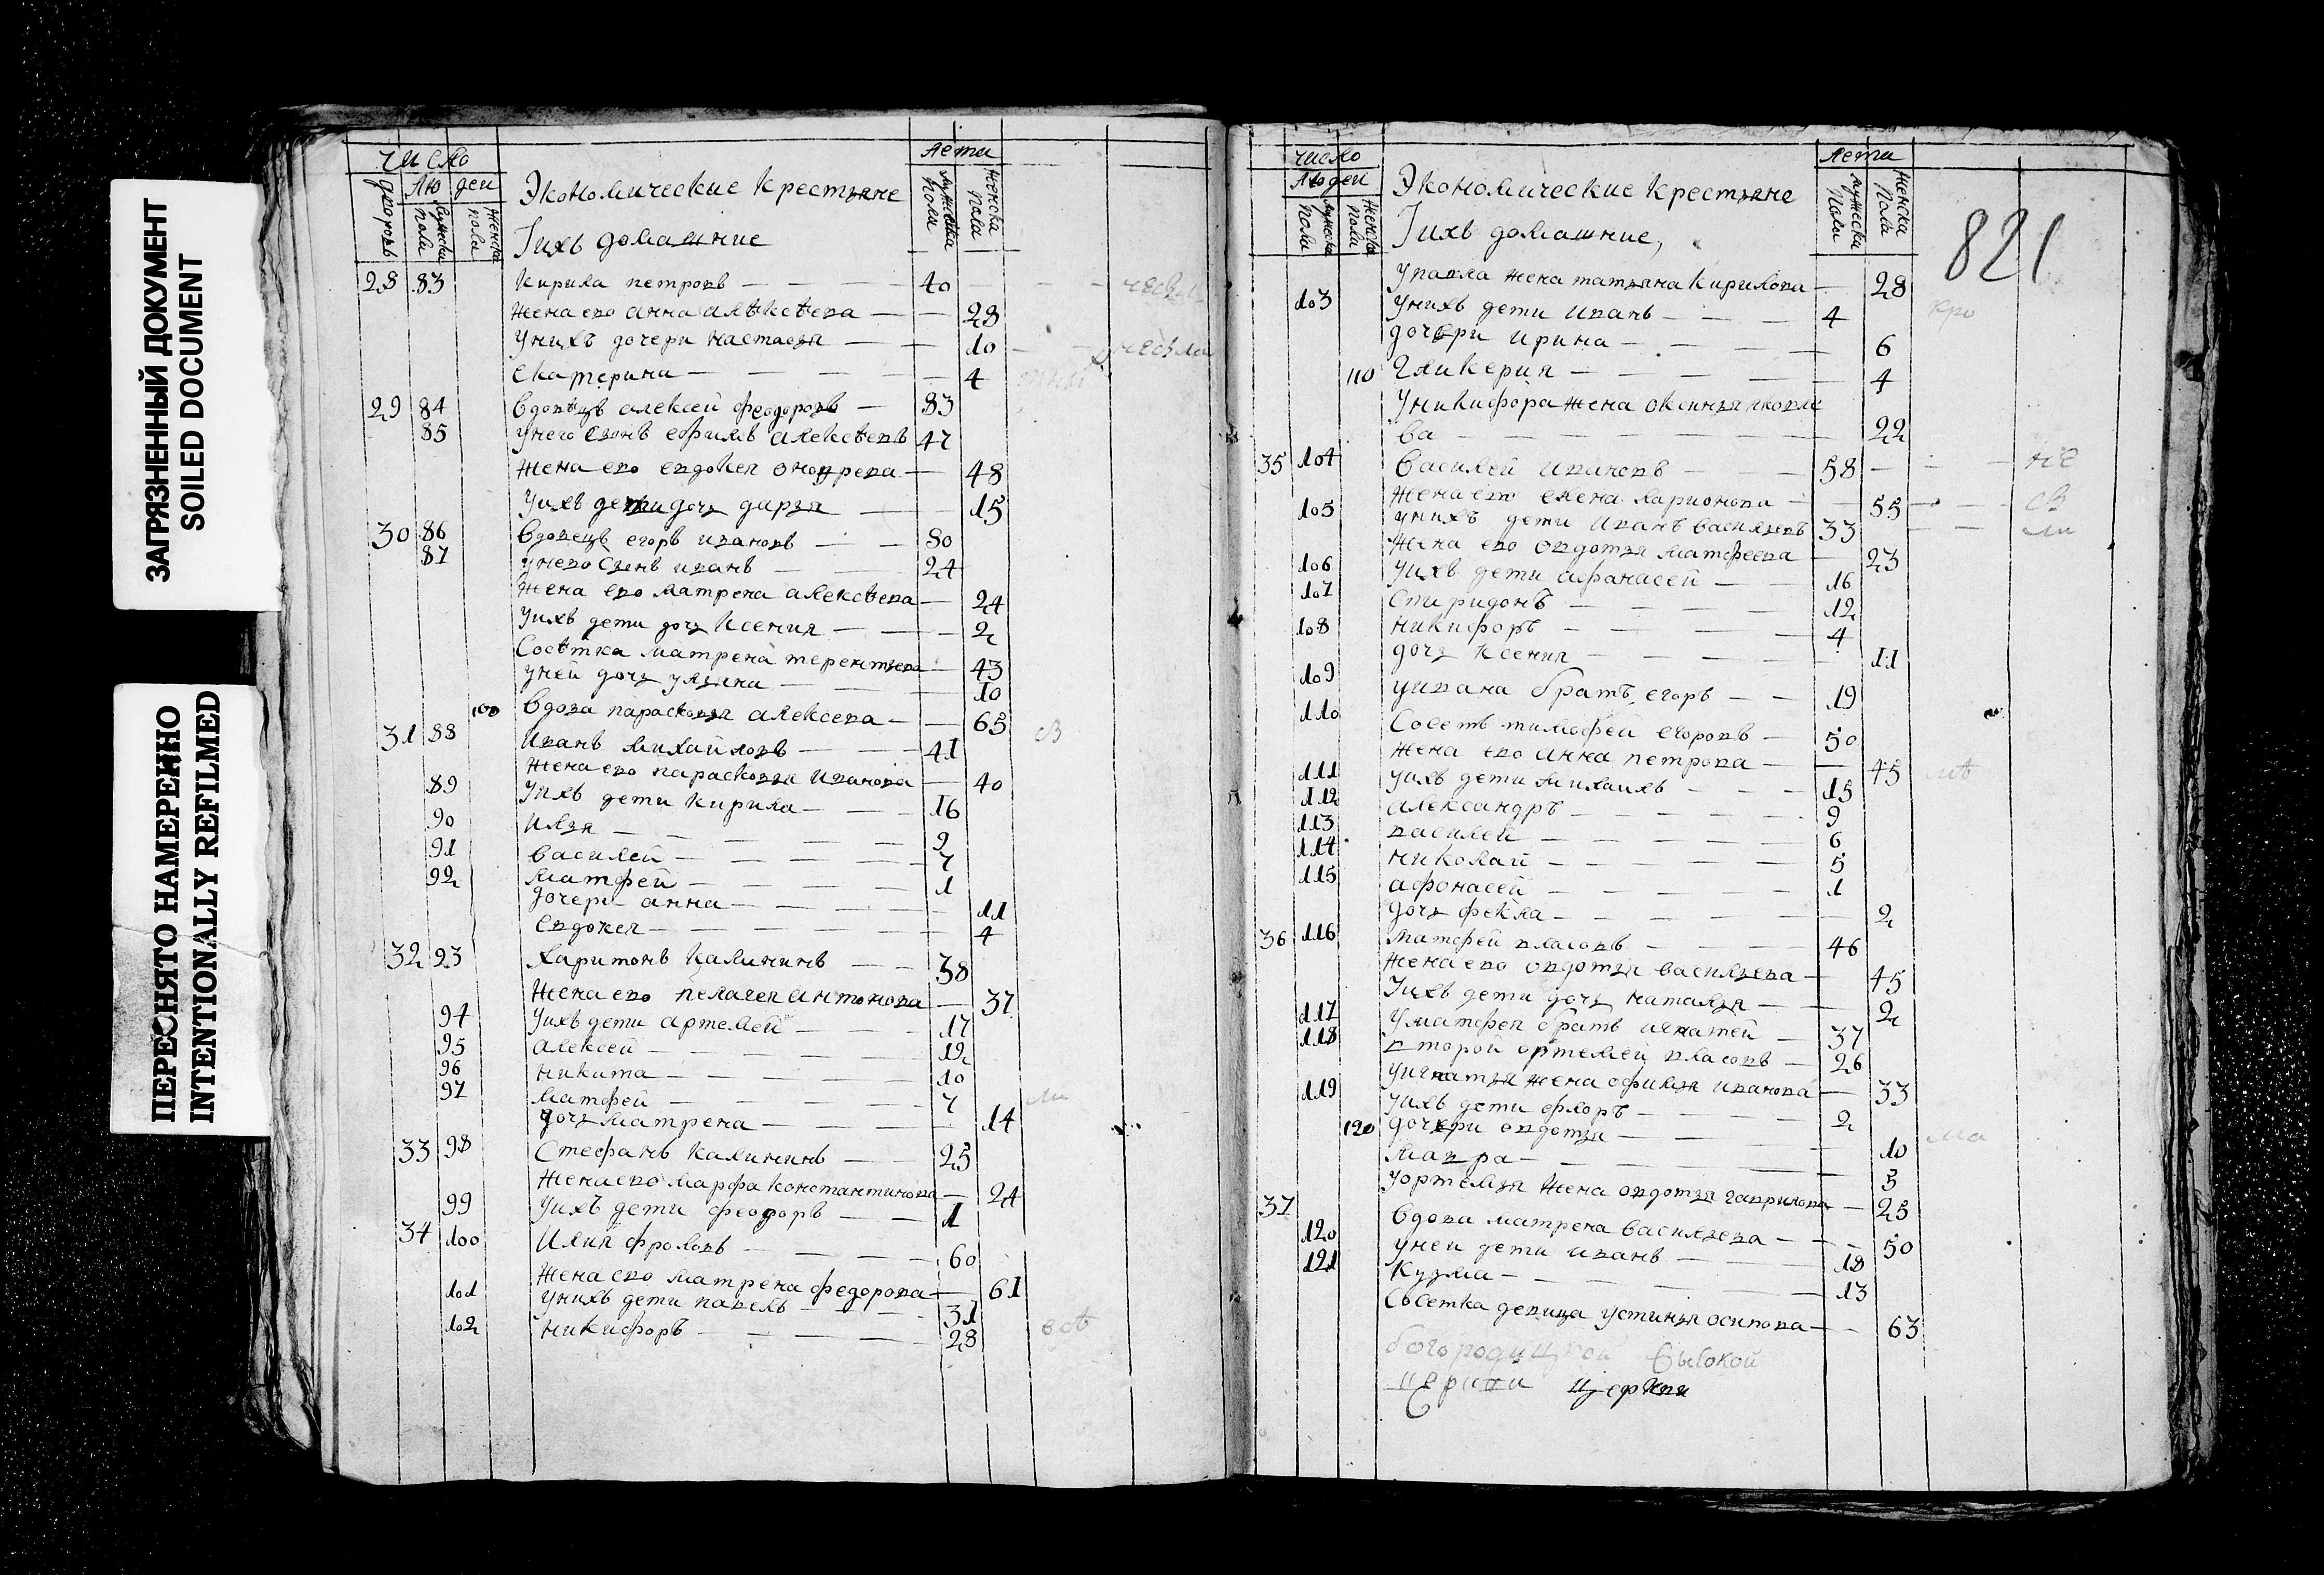 ЗАГРЯЗНЕННЫЙ ДОКУМЕНТ
SOILED DOCUMENT
ПЕРЕСНЯТО НАМЕРЕННО
INTENTIONALLY REFILMED
число
дворовъ
людей
мужска пола
женска пола
Экономические крестьяне
Іихъ домашние
лета
мужска пола
женска пола
28 83 Кирила петровъ — 40
жена ево анна алѣксѣева — 28
Унихъ дочери настасья — 10
екатерина — 4
29 84 вдовѣцъ алексей феодоровъ — 83
85 унего сынъ ефимъ алексѣевъ 47
жена ево евдокея онофрева — 48
Уихъ дети дочь дарья — 15
30 86 Вдовецъ егоръ ивановъ — 80
87 унево сынъ иванъ — 24
жена ево матрена алексѣева — 24
Уихъ дети дочь Ксения — 2
Сосѣтка матрена терентьева — 43
уней дочь ульяна — 10
100 Вдова парасковья алексева — 65
31 88 Иванъ михайловъ — 41
жена ево парасковья иванова — 40
89 Уихъ дети кирила — 16
90 илья — 9
91 василей — 7
92 матфей — 1
дочери анна — 11
евдокея — 4
32 93 Харитонъ калининъ — 38
жена ево пелагея антонова — 37
94 Уихъ дети артемей — 17
95 алексей — 12
96 никита — 10
97 матфей — 7
дочь матрена — 14
33 98 Стефанъ калининъ — 25
жена ево марфа константинова — 24
99 Уихъ дети феодоръ — 1
34 100 Илия фроловъ — 60
жена ево матрена федорова — 61
101 унихъ дети павелъ — 31
102 никифоръ — 28
число
людей
мужска пола
женска пола
Экономические крестьяне
Іихъ домашние,
лета
мужска пола
женска пола
821
Упавла жена татьяна кирилова — 28
103 Унихъ дети иванъ — 4
дочери ирина — 6
110 Гликерия — 4
Уникифора жена оксинья яковле
ва — 22
35 104 Василей ивановъ — 58
жена ево елена ларионова — 55
105 унихъ дети иванъ васильевъ 33
жена ево овдотья матфеева — 23
106 Уихъ дети афанасей — 16
107 Спиридонъ — 12
108 никифоръ — 4
дочь ксения — 11
109 уивана братъ егоръ — 19
110 Сосетъ тимофей егоровъ — 50
жена ево анна петрова — 45
111 уихъ дети михаилъ — 15
112 александръ — 9
113 василей — 6
114 николай — 5
115 афонасей — 1
дочь фекла — 2
36 116 матфей власовъ — 46
жена ево овдотья васильева — 45
Уихъ дети дочь наталья — 2
117 Уматфея братъ игнатей — 37
118 второй ортемей власовъ — 26
Уигнатья жена офимья иванова — 33
119 уихъ дети флоръ — 2
120 дочери овдотья — 10
мавра — 5
Уортемья жена овдотья гаврилова — 25
37 Вдова матрена васильева — 50
120 уней дети иванъ — 18
121 Кузма — 13
Сосетка девица устинья осипова — 63
богородицкой высокой
церкви